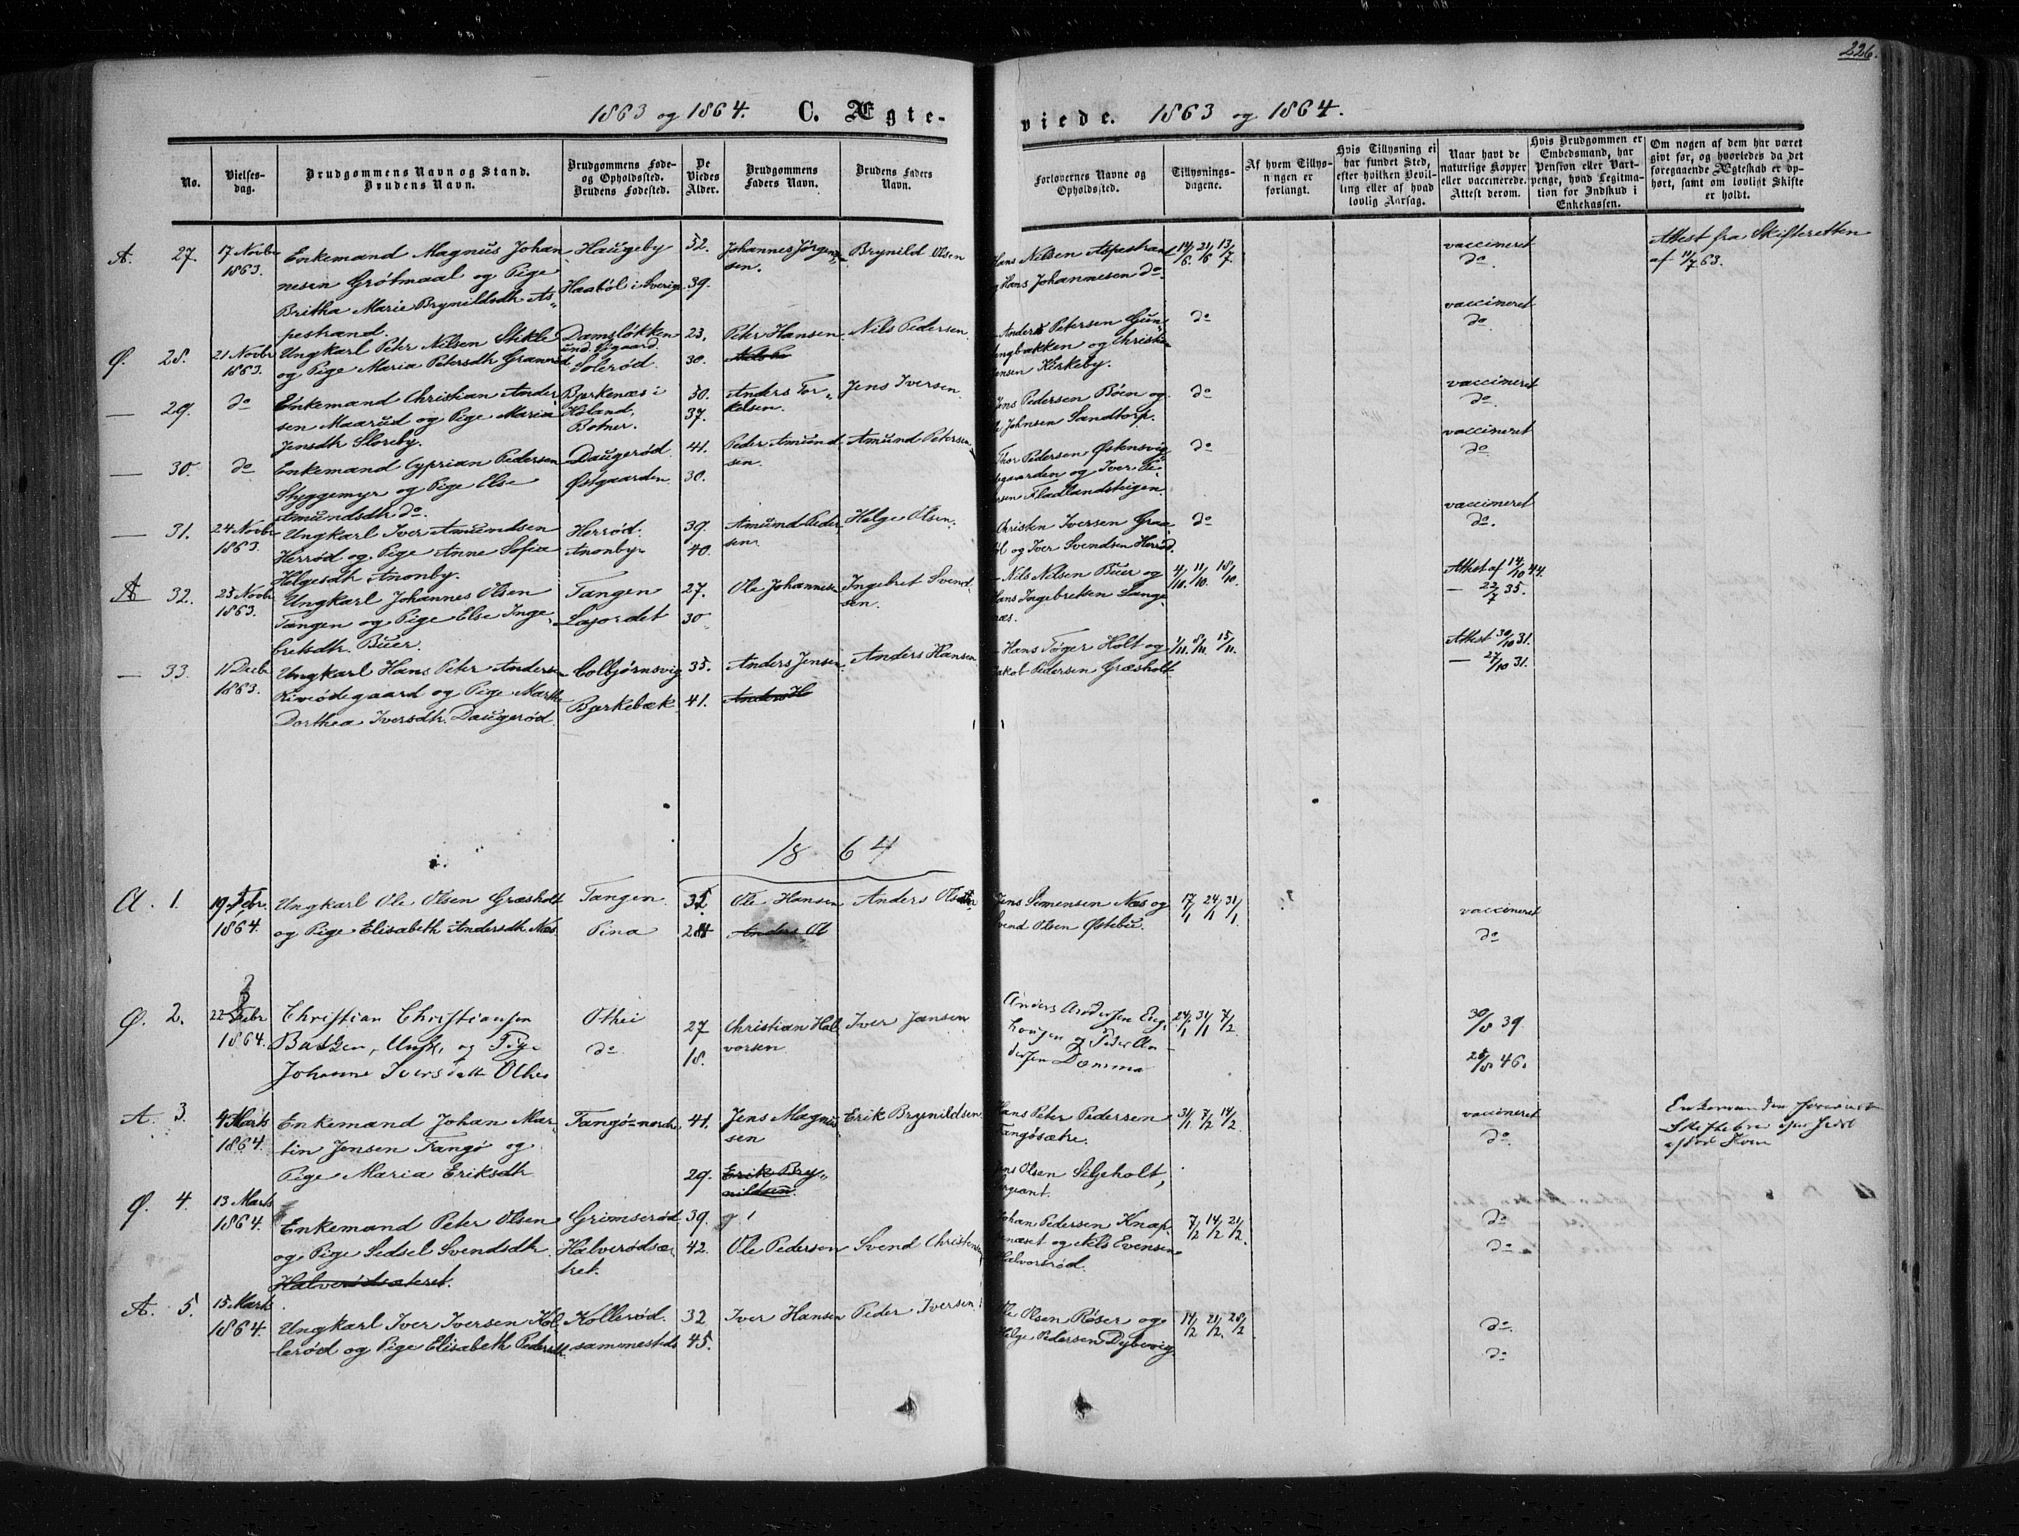 226.
1863 og 1864. C. Ægte-
viede. 1863 og 1864.
No.
Vielses-
dag.
Brudgommens Navn og Stand.
Brudens Navn.
Brudgommens Føde-
og Opholdssted.
Brudens Fødested.
De
Viedes
Alder.
Brudgommens
Faders Navn.
Brudens Faders
Navn.
Forlovernes Navne og
Opholdssted.
Tillysnings-
dagene.
Af hvem Tillys-
ningen er
forlangt.
Hvis Tillysning ei
har fundet Sted,
efter hvilken Bevil-
ling eller af hvad
lovlig Aarsag.
Naar havt de
naturlige Kopper
eller vaccinerede.
Attest derom.
Hvis Brudgommen er
Embedsmand, har
Pension eller Vart-
penge, hvad Legitima-
tion for Indskud i
Enkekassen.
Om nogen af dem har været
givt før, og hvorledes da det
foregaaende Ægteskab er op-
hørt, samt om lovligt Skifte
er holdt.
A. 27. 17 Novbr
1863.
Enkemand Magnus Johan
nesen Grøtmaal og Pige
Britha Marie Brynildsdh As-
pestrand.
Haugeby
Haaböl i Sverig
52.
39.
Johannes Jörgen-
sen.
Brynild Olsen
Hans Nilsen Aspestran
og Hans Johannesen do.
14/6 21/6 13/7
vaccineret
do.
Attest fra Skifteretten
af 11/7 63.
Ø. 28. 21 Novbr
1863.
Ungkarl Peter Nilsen Stikle
og Pige Maria Petersdh Granerød
Damsløkken
Solerød.
23.
30.
Peter Hansen
Nils Pedersen.
Anders Petersen Gun-
engbakken og Christi-
ensen Kirkeby.
do
vaccineret
do.
— 29. do
Enkemand Christian Ander
sen Maarud og Pige Maria
Jensdh Sloreby.
Bjerkenæs i
Høland.
Botner.
50.
37.
Anders Tor-
kelsen.
Jens Iversen
Jens Pedersen Böen og
Johnsen Sandtorp.
do
vaccineret
do.
— 30. do
Enkemand Cyprian Pedersen
Styggemyr og Pige Else
Amundsdh do.
Daugerød.
Østgaarden
41.
30.
Peder Amund
sen.
Amund Petersen
Thor Pedersen Øskensvig
gaarden og Iver Pe-
ersen Fladlandsteigen.
do
vaccineret
do.
— 31. 24 Novbr
1863.
Ungkarl Iver Amundsen
Herrød og Pige Anne Sofia
Helgesdh Anonby.
Herrød.
Anonby
39.
40.
Amund Peder
sen.
Helge Olsen.
Christen Iversen Graa-
öl og Iver Svendsen Herrød.
do
vaccineret
do.
A 32. 25 Novbr
1863.
Ungkarl Johannes Olsen
Tangen og Pige Else Inge-
bretsdh Buer.
Tangen
Lajordet
27.
30
Ole Johannese
Ingebret Svend-
sen.
Nils Nilsen Buer og
Hans Ingebretsen Lange-
næs.
4/10. 11/10. 18/10.
Attest af 14/10 44.
— 22/7 35.
— 33. 11 Decbr
1863.
Ungkarl Hans Peter Andersen
Kirkødegaard og Pige Marthe
Dorthea Iversdh. Daugerød.
Colbjørnsvig
Bjerkebæk
35.
41.
Anders Jensen
Anders Hansen
Hans Töger Holt og
Jakob Pedersen Græsholt
1/11. 8/11. 15/11.
Attest 30/10 31.
— 27/10 31.
1864
A. 1. 19 Febr.
1864.
Ungkarl Ole Olsen Græsholt
og Pige Elisabeth Andersdh. Næs
Tangen.
Pina
35.
24
Ole Hansen
Anders Olsen
Jens Simensen Næs og
Svend Olsen Østebu.
17/1 24/1 31/1.
vaccineret
do
Ø. 2. 22 Febr
1864.
Christian Christiansen
Bakken, Ungk, og Pige
Johanne Iversdatt Othei
Othei
do
27
18.
Christian Hal
vorsen
Iver Jansen
Anders Andersen Eng-
hougen og Peder An-
dersen Damma
24/1 31/1 7/2
30/8 39.
25/8 46.
A. 3. 4 Marts
1864.
Enkemand Johan Mar-
tin Jensen Tangø og
Pige Maria Eriksdh
Tangø-nordre
41.
29.
Jens Magnus
sen
Erik Brynildsen.
Erik Bry-
nildsen.
Hans Peter Pedersen
Tangøsætre.
Jens Olsen Siljeholt,
Sergeant.
31/1 7/2 14/2
vaccineret
do
Enkemanden foreviste
Ø. 4. 13 Marts
1864.
Enkemand Peter Olsen
og Pige Sedsel Svendsdh.
Halverødsæteret.
Grimserød
Halverødsæ-
tret.
39.
42.
Ole Pedersen
Svend Christensen
Johan Pedersen Knap-
enæset og Nils Evensen
Halvorsrød.
7/2 14/2 21/2
do
do
A. 5. 15 Marts
1864.
Ungkarl Iver Iversen Kol-
lerød og Pige Elisabeth Pedersdh.
Kollerød.
sammesteds
32
45.
Iver Hansen
Peder Iversen
Ole Olsen Røser og
Helge Pedersen Dybevig
14/2 21/2. 28/2
do.
do